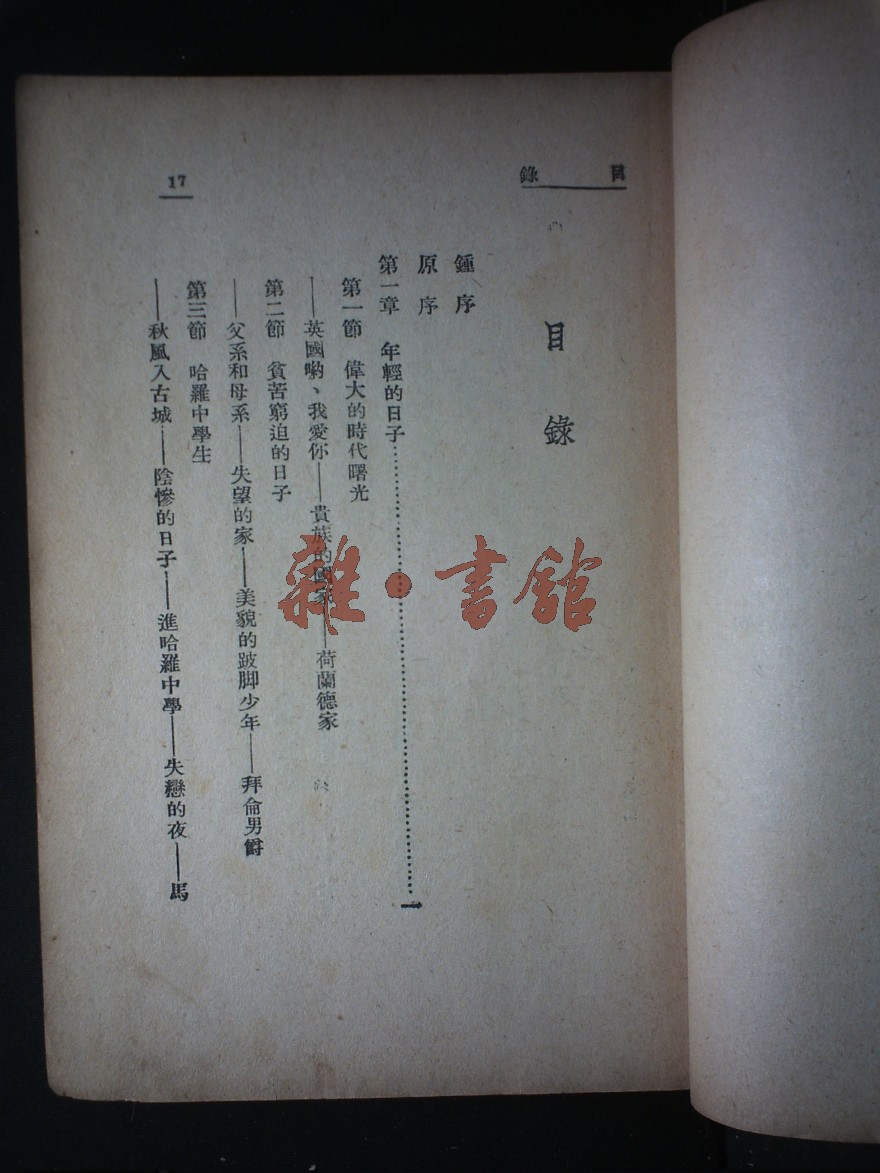 目錄
17
目錄
鍾序
原序
第一章 年輕的日子………………一
第一節 偉大的時代曙光
——英國喲、我愛你——貴族的國家——荷蘭德家
第二節 貧苦窮迫的日子
——父系和母系——失望的家——美貌的跛脚少年——拜倫男爵
第三節 哈羅中學生
——秋風入古城——陰慘的日子——進哈羅中學——失戀的夜——馬
雜·書館